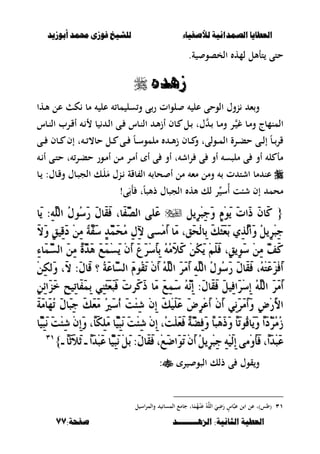 العطايا الصمدانية للأصفياء
للشيخ فوزى محمد أبوزيد
حتى يتأهل لهذه الخصوصية.
زهده ﷺ
وبعد نزول الوحى عليه صلوات ربى وتسليماته عليه ما نكث عن هذا
المنهاج وما غيَّر وما بدَّل، بل كان أزهد الناس فى الدنيا لأنه أقرب الناس
قرباً إلى حضرة المولى، وكان زهده ملموساً فى كل حالاته، إن كان فى
مأكله أو فى ملبسه أو فى فراشه، أو فى أى أمر من أمور حضرته، حتى أنه
عندما اشتدت به ومن معه من أصحابه الفاقة نزل مَلَك الجبال وقال: يا
محمد إن شئت أُسيِّر لك هذه الجبال ذهباً، فأبى!
{ كَانَ ذَاتَ يَوْمٍ وَجِبْرِيلَ عَلَى الصَّفَا، فَقَالَ رَسُولُ اللَّهِ: يَا
جِبْرِيلُ وَالَّذِي بَعَثَكَ بِالْحَقِّ، مَا أَمْسَى لآلِ مُحَمَّدٍ سَفَّةٌ مِنْ دَقِيقٍ وَلا
كَفٌّ مِنْ سَوِيقٍ، فَلَمْ يَكُنْ كَلامُهُ بِأَسْرَعَ أَنْ يَسْمَعَ هَدَّةً مِنَ السَّمَاءِ
أَفْزَعَتْهُ، فَقَالَ رَسُولُ اللَّهِ أَمَرَ اللَّهُ أَنْ تَقُومَ السَّاعَةُ ؟ قَالَ: لا، وَلَكِنْ
أَمَرَ اللَّهُ إِسْرَافِيلَ فَقَالَ: إِنَّهُ سَمِعَ مَا ذَكَرْتَ فَبَعَثَنِي بِمَفَاتِيحِ خَزَائِنِ
الأَرْضِ وَأَمَرَنِي أَنْ أَعْرِضَ عَلَيْكَ إِنْ شِئْتَ أُسَيِّرُ مَعَكَ جِبَالَ تِهَامَةَ
زُمُرُّدًا وَيَاقُوتًا وَذَهَبًا وَفِضَّةً فَعَلْتُ، إِنْ شِئْتَ نَبِيًّا مَلِكًا، وَإِنْ شِئْتَ نَبِيًّا
عَبْدًا، فَأَوْمَى إِلَيْهِ جِبْرِيلُ أَنْ تَوَاضَعْ، فَقَالَ: بَلْ نَبِيًّا عَبْدًا ـ ثَلاثًا ـ} ٣١
ويقول فى ذلك البوصيرى ﷺ:
٣١ (طس)، عن ابن عبَّاسٍ رَضِيَ اللَّهُ عَنْهُمَا، جامع المسانيد والمراسيل
العطية الثانية: الزهـــــد
صفحة:٧٧